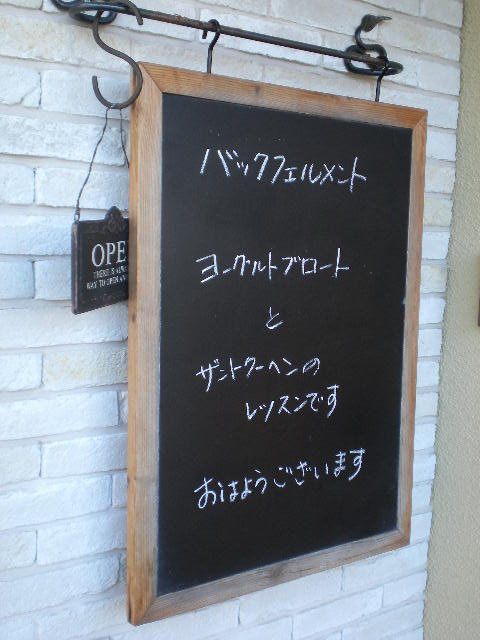 バックフェルメント
ヨーグルトブロート
と
ザントクーヘンの
レッスンです
おはようございます
OPE
THERE IS ALWA
WAY TO OPEN AN